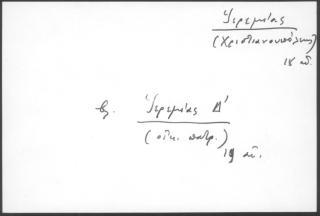 Ἱερεμίας
(Χριστιανουπόλεως)
18 αἰ.
βλ. Ἱερεμίας Δ'
(οἰκ. πατρ.)
19 αἰ.